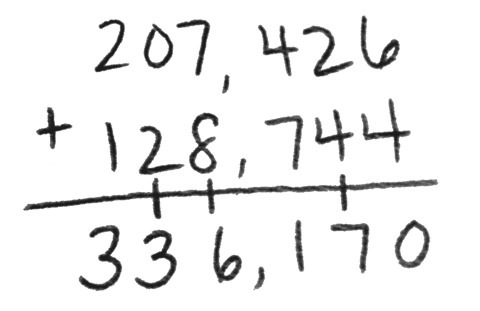 207,426
+ 128,744
336,170